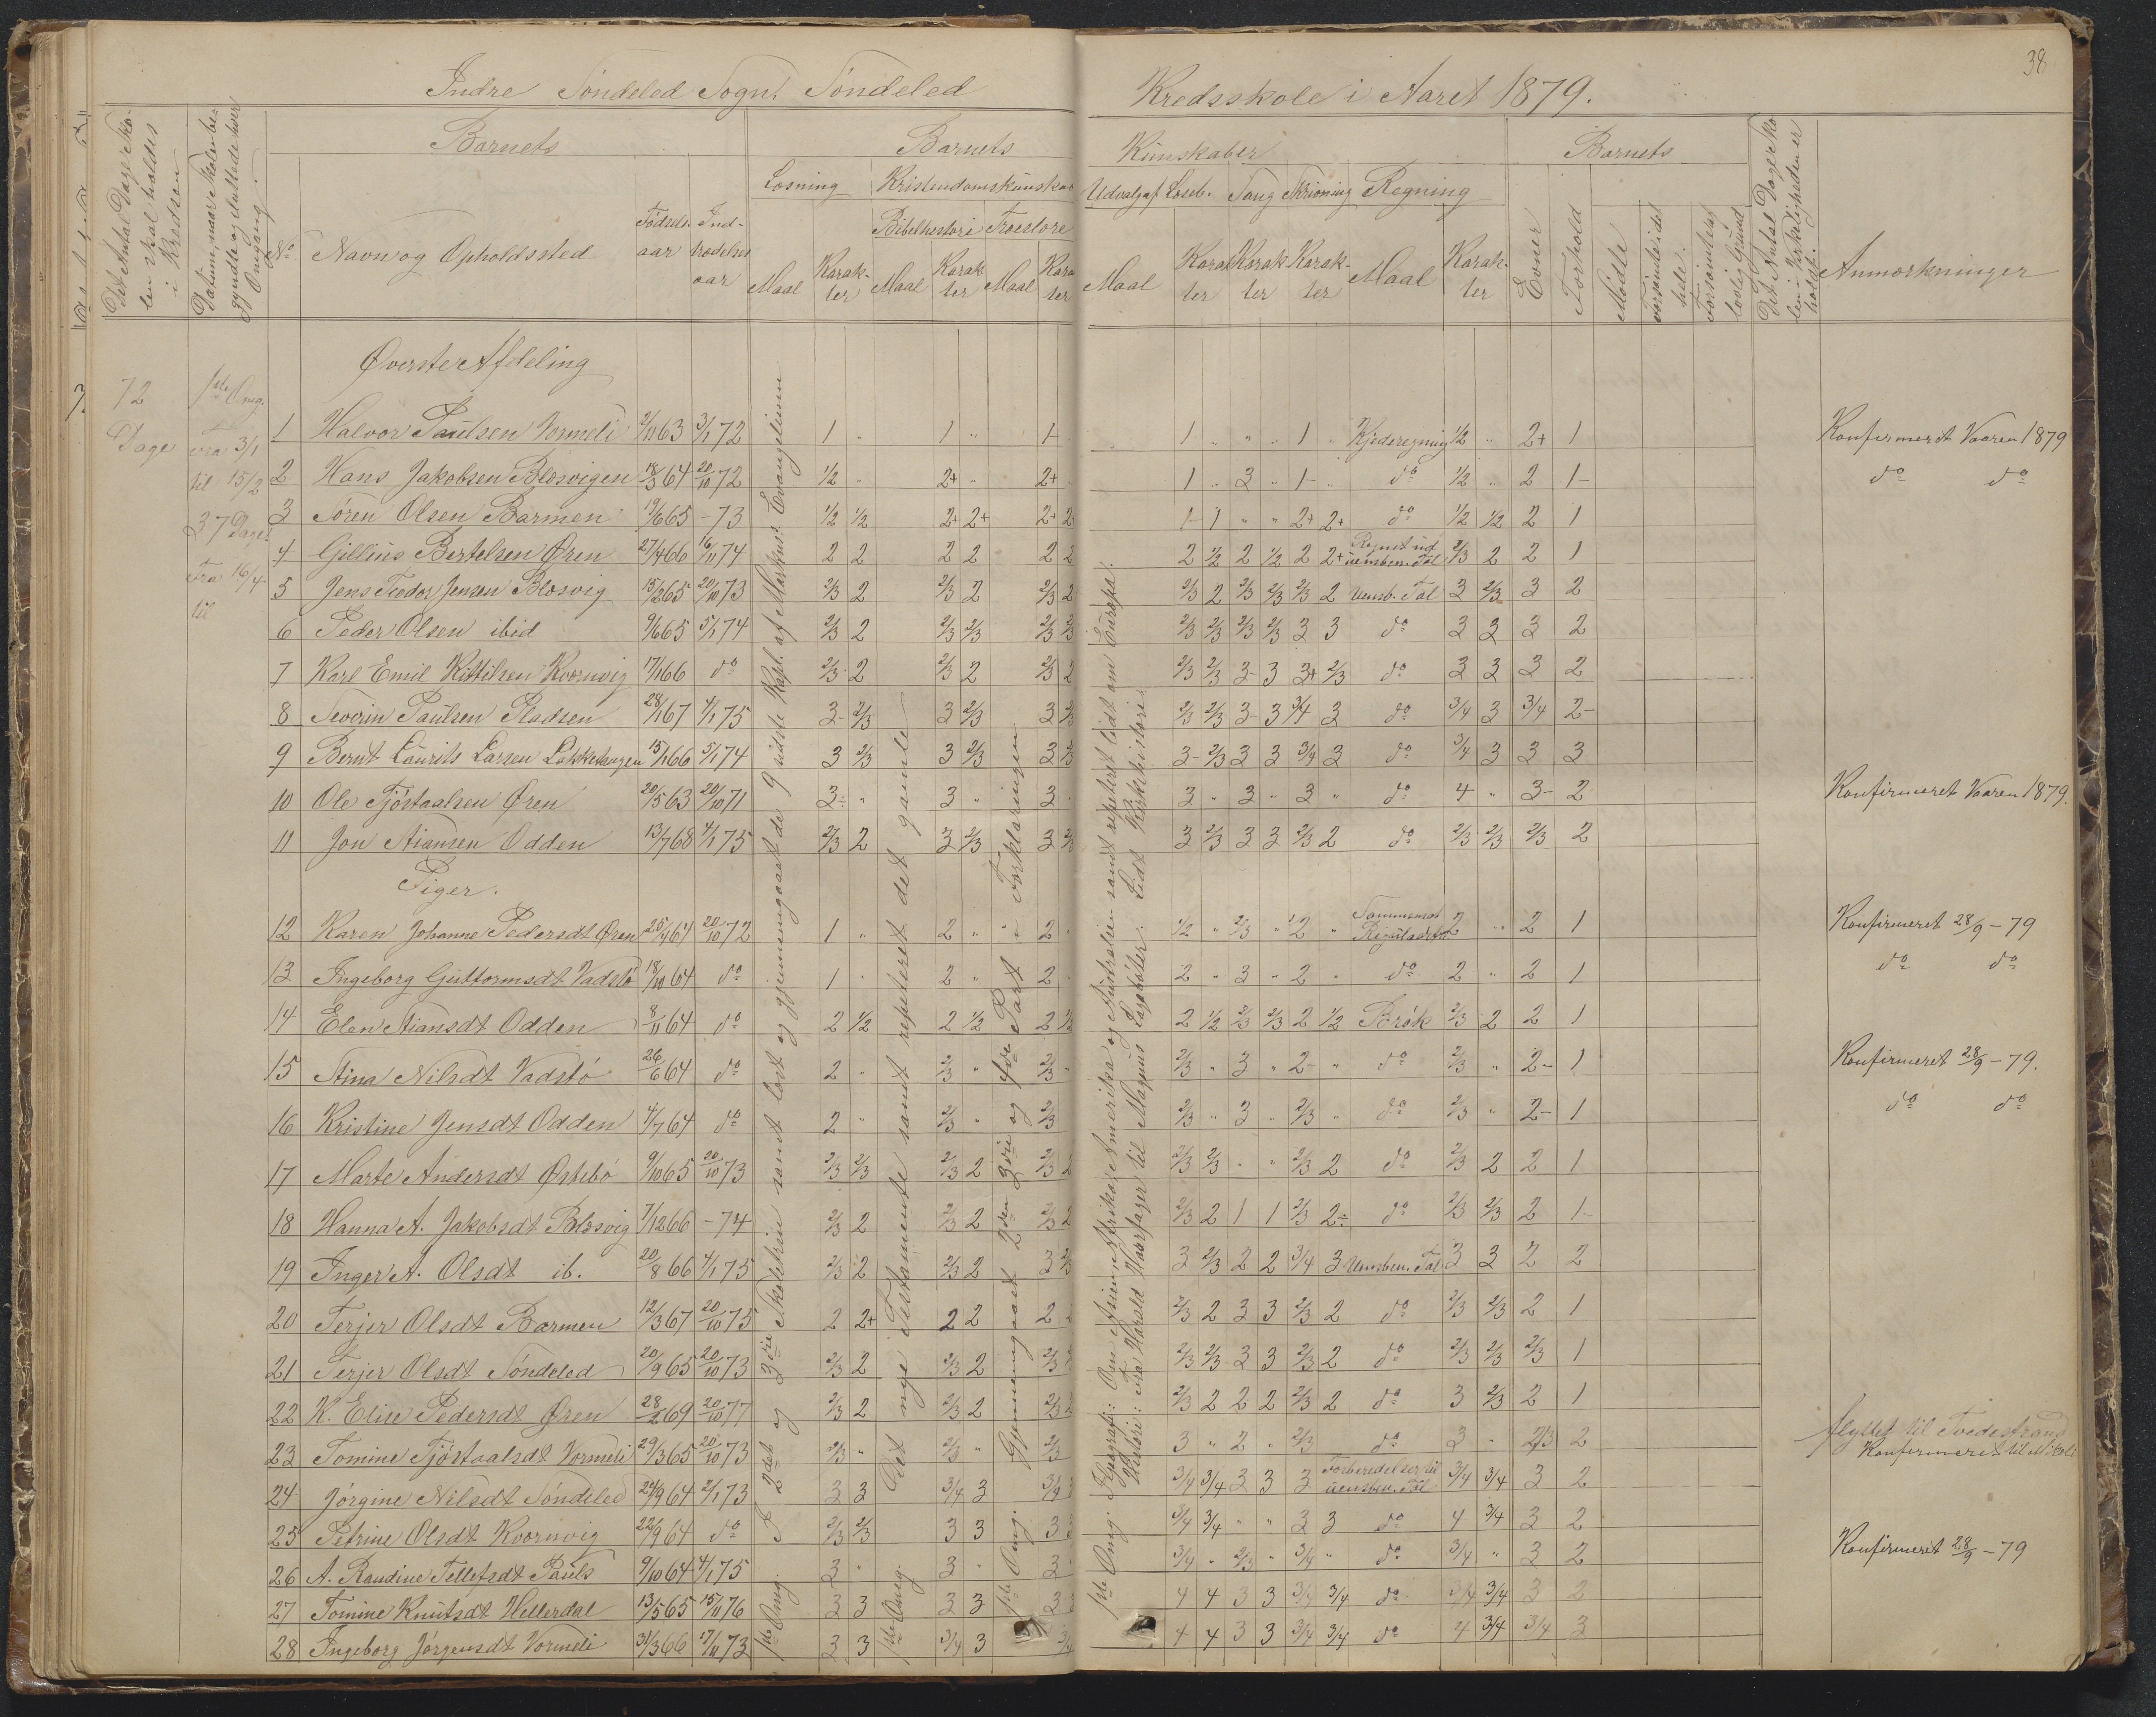 38
Indre Söndeled Sogn. Söndeled Kredsskole i Aaret 1879.
Det Antal Dage Skolen skal holdes i Kredsen
Datum, naar Skolen begyndte og sluttede hver Omgang.
No
Barnets
Navn og Opholdssted
Födselsaar
Indtrædelsesaar
Barnets Kunskaber
Læsning
Maal
Karakter
Kristendomskunskab
Bibelhistorie
Maal
Karakter
Troeslære
Maal
Karakter
Udvalg af Læseb.
Maal
Karakter
Sang
Karakter
Skrivning
Karakter
Regning
Maal
Karakter
Barnets
Evner
Forhold
Mödte
forsömte i det hele.
Forsömte af lovlig Grund
Det Antal Dage Skolen i Virkeligheden er holdt.
Anmærkninger
7.
72 Dage
1ste Omg.
fra 3/1
til 15/2
37 Dage.
Fra 16/4
til
Överste Afdeling
1 Halvor Paulsen Vormeli 2/11 63 3/1 72 1 " 1 " 1- 1 " " " 1 " Kjæderegning 1/2 " 2+ 1 Konfirmeret Vaaren 1879
2 Hans Jakobsen Blæsvigen 18/3 64 20/10 72 1/2 " 2+ " 2+ 1 " 3 " 1- " do 1/2 " 2 1- do do
3 Sören Olsen Barmen 19/6 65 - 73 1/2 1/2 2+ 2+ 2+ 2 1- 1 " " 2+ 2+ do 1/2 1/2 2 1
4 Gillius Bertelsen Ören 27/4 66 16/11 74 2 2 2 2 2 2 2 1/2 2 1/2 2 2+ uensben. Tal 2/3 2 2 1
5 Jens Teodor Jensen Blæsvig 15/2 65 20/10 73 2/3 2 2/3 2 2/3 2 2/3 2 2/3 2/3 2/3 2 Uensb. Tal 3 2/3 3 2
6 Peder Olsen ibid 9/6 65 5/1 74 2/3 2 2/3 2/3 2/3 2/3 2/3 2/3 2/3 2/3 3 3 do 3 3 3 2
7 Karl Emil Kittilsen Kvornvig 17/1 66 do 2/3 2 2/3 2 2/3 2 2/3 2/3 3- 3 3+ 2/3 do 3 3 3 2
8 Severin Paulsen Pladsen 28/1 67 4/1 75 3- 2/3 3 2/3 3 2/3 2/3 2/3 3- 3 3/4 3 do 3/4 3 3/4 2-
9 Bernt Laurits Larsen 15/1 66 5/1 74 3 2/3 3 2/3 3 2/3 3- 2/3 3 3 3/4 3 do 3/4 3 3 3
10 Ole Tjöstaalsen Ören 20/5 63 20/10 71 3- " 3 " 3 " 3 " 3 " 3 " do 4 " 3- 2 Konfirmeret Vaaren 1879.
11 Jon Aiansen Odden 13/7 68 4/1 75 2/3 2 3 2/3 3 2/3 3 2/3 3 3 2/3 2 do 2/3 2/3 2/3 2
Piger.
12 Karen Johanne Pedersdt Ören 25/4 64 20/10 72 1 " 2 " 2 1/2 " 2/3 " 2 " 2 " 2 1 Konfirmeret 28/9 - 79
13 Ingeborg Guttormsdt Vadstö 18/10 64 do 1 " 2 " 2 2 " 3 " 2 " do 2 " 2 1 do do
14 Elen Aiansdt Odden 8/11 64 do 2 1/2 2 1/2 2 1/2 2 1/2 2/3 2/3 2 1/2 Brök 2/3 2 2 1
15 Stina Nilsdt Vadstö 26/6 64 do 2 " 2/3 " 2/3 " 2/3 " 3 " 2- " do 2/3 " 2- 1 Konfirmeret 28/9 - 79.
16 Kristine Jensdt Odden 4/7 64 do 2 " 2/3 " 2/3 2/3 " 3 " 2/3 " do 2/3 " 2- 1 do do
17 Marte Andersdt Östebö 9/10 65 20/10 73 2/3 2/3 2/3 2 2/3 2 2/3 2/3 " " 2/3 2 do 2/3 2 2 1
18 Hanna A. Jakobsdt Blæsvig 7/12 66 - 74 2/3 2 2/3 2 2/3 2 2/3 2 1 1 2/3 2- do 2/3 2/3 2 1-
19 Inger A. Olsdt ib. 20/8 66 4/1 75 2/3 2 2/3 2 3 2/3 3 2/3 2 2 3/4 3 Uensben. Tal 3 3 2 2
20 Terjer Olsdt Barmen 12/3 67 20/10 75 2 2+ 2 2 2 2 2/3 2 3 3 2/3 2 do 2/3 2/3 2 1
21 Terjer Olsdt Söndeled 20/9 65 20/10 73 2/3 2 2/3 2 2/3 2/3 2/3 3 3 2/3 2 do 2/3 2/3 2/3 1
22 K. Elise Pedersdt Ören 28/2 69 20/10 77 2/3 2 2/3 2 2/3 2/3 2 2 2 2/3 2 do 3 2/3 2 1
23 Tomine Tjöstaalsdt Vormeli 29/3 65 20/10 73 2/3 " 2/3 " 2/3 3 " 2 " 2/3 do 3 " 2/3 2 flyttet til Tvedestrand
Konfirmeret
24 Jörgine Nilsdt Söndeled 24/9 64 2/1 73 3 3 3/4 3 3/4 3/4 3/4 3 3 3 Forberedelser til uensben. Tal 3/4 3/4 3 2
25 Petrine Olsdt Kvornvig 22/9 64 do 2/3 2/3 3 3 3 3 3/4 3/4 " " 3 3 do 4 3/4 3 2
26 A. Randine Tellefsdt Pauls 9/10 64 4/1 75 3 " 3 " 3 3/4 " 2/3 " 3/4 " do 3/4 " 3 2 Konfirmeret 28/9 - 79
27 Tomine Knutsdt Hellerdal 13/5 65 15/11 76 3 3 3 3 3 4 4 3 3 3/4 3/4 do 3/4 3/4 3 2
28 Ingeborg Jörgensdt Vormeli 31/3 66 17/11 73 3 3 3/4 3 3/4 4 4 3 3 3/4 3/4 do 4 3/4 3/4 3
1ste Omg. I 2det og 3die Skoletrin samt læst og gjennemgaaet de 9 sidste Kapl. af Markus's Evangelium
1ste Omg. Det nye Testamente samt repeteret det gamle
1ste Omg. Gjennemgaaet 2den 3die og 4de Part i Forklaringen
1ste Omg. Geografi: Om Asien Afrika Amerika og Australien samt repeteret lidt om Europa.
Historie: Fra Harald Haarfager til Magnus Lagaböter. Lidt Kirkehistorie